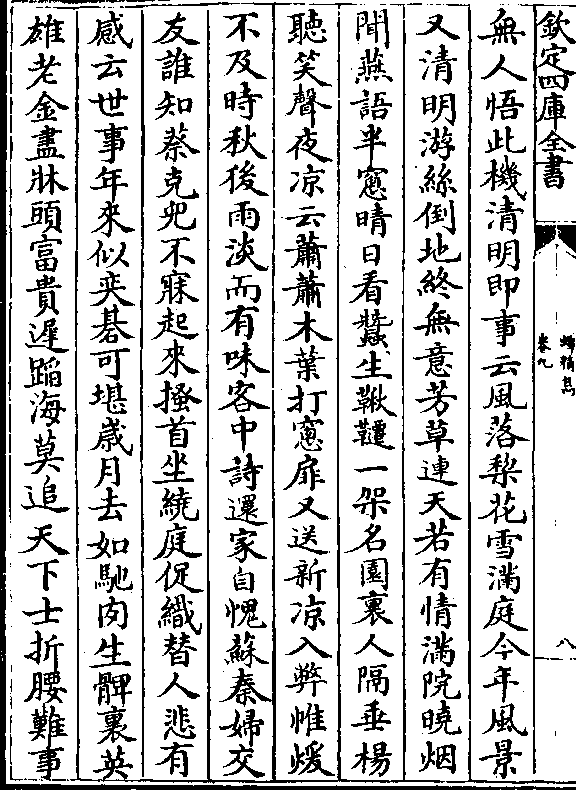 欽定四庫全書
蟫精雋
卷九
八
無人悟此機清明即事云風落梨花雪滿庭今年風景
又清明游絲倒地終無意芳草連天若有情滿院曉烟
聞燕語半窻晴日看蠶生鞦韆一架名園裏人隔垂楊
聽笑聲夜凉云蕭蕭木葉打窻扉又送新凉入弊帷煖
不及時秋後雨淡而有味客中詩還家自愧蘇秦婦交
友誰知蔡克兒不寐起來搔首坐繞庭促織替人悲有
感云世事年來似奕碁可堪歳月去如馳肉生髀裏英
雄老金盡牀頭富貴遲蹈海莫追天下士折腰難事